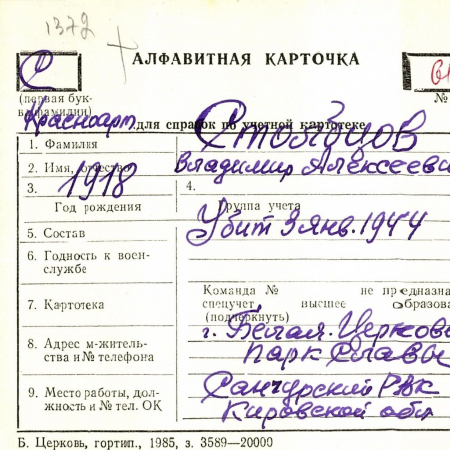 1372
АЛФАВИТНАЯ КАРТОЧКА
С
(первая бук-
ва фамилии)
№
Красноарт. для справок по учетной картотеке
1. Фамилия
2. Имя, отчество Владимир Алексееви
3. 1918 4.
Год рождения Группа учета
5. Состав Убит 3 янв. 1944
6. Годность к воен-
службе
Команда № не предназна
7. Картотека спецучет высшее образова
(подчеркнуть)
г. Белая Церковь
8. Адрес м-житель-
ства и № телефона парк Славы
9. Место работы, дол-
жность и № тел. ОК Санчурский РВК
Кировской обл
Б. Церковь, гортип., 1985, з. 3589—20000